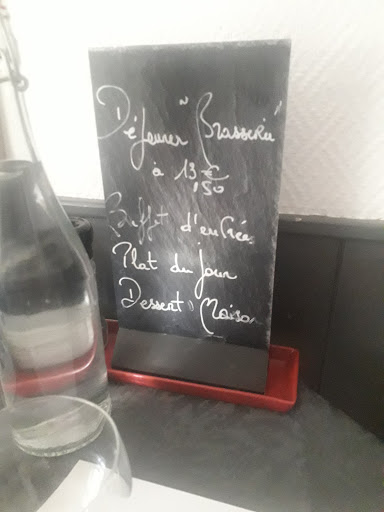 Déjeuner "Brasserie"
à 13 €
,50
Buffet d'entrée
Plat du Jour
Dessert Maison